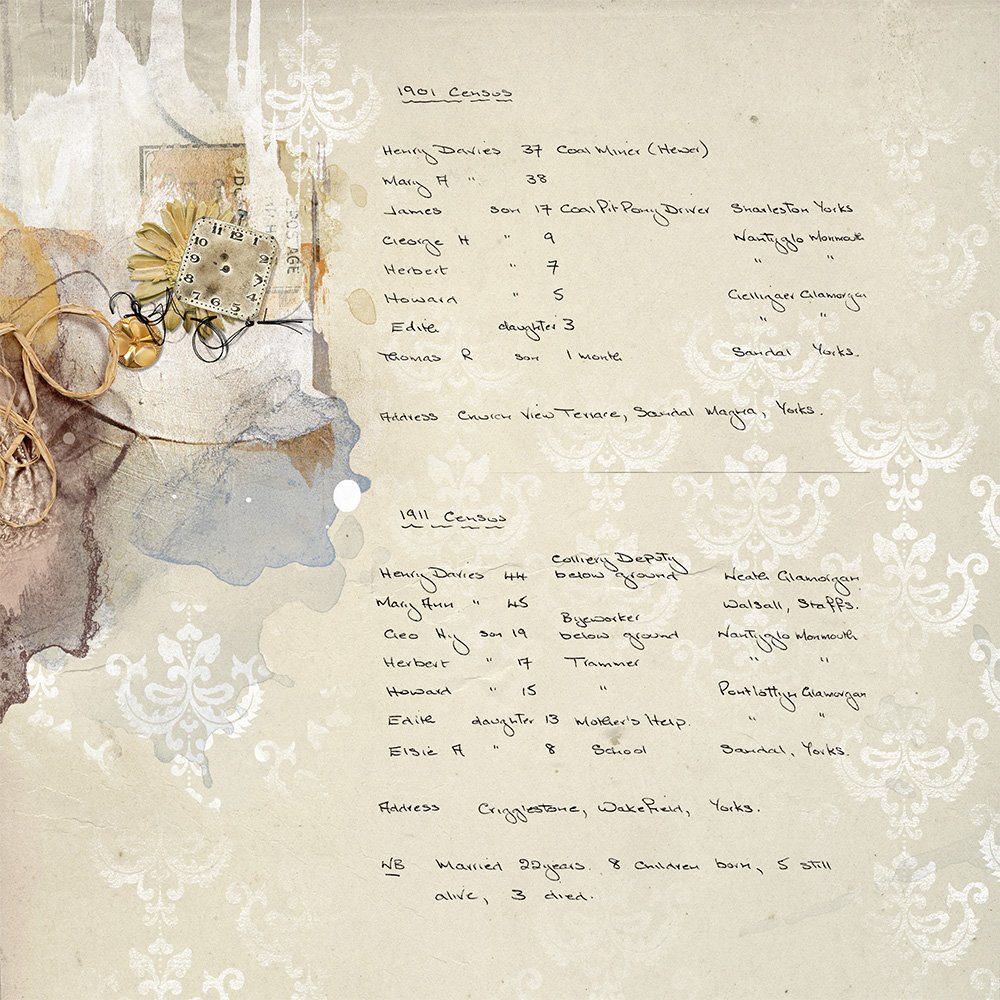 1901 Census
Henry Davies 37 Coal Miner (Hewer)
Mary A " 38
James son 17 Coal Pit Pony Driver Sharleston Yorks
George H " 9 Nantyglo Monmouth
Herbert " 7 " "
Howard " 5 Gelligaer Glamorgan
Edith daughter 3 " "
Thomas R son 1 month Sandal Yorks.
Address Church View Terrace, Sandal Magna, Yorks.
1911 Census
Henry Davies 44 Colliery Deputy below ground Neath Glamorgan
Mary Ann " 45 Walsall, Staffs.
Geo Hy son 19 Byeworker below ground Nantyglo Monmouth
Herbert " 17 Trammer " "
Howard " 15 " Pontlottyn Glamorgan
Edith daughter 13 Mother's Help. " "
Elsie A " 8 School Sandal, Yorks.
Address Crigglestone, Wakefield, Yorks.
NB Married 22 years. 8 children born, 5 still
alive, 3 died.
11 12 1
10
9
8
7 6 5
POSTAGE